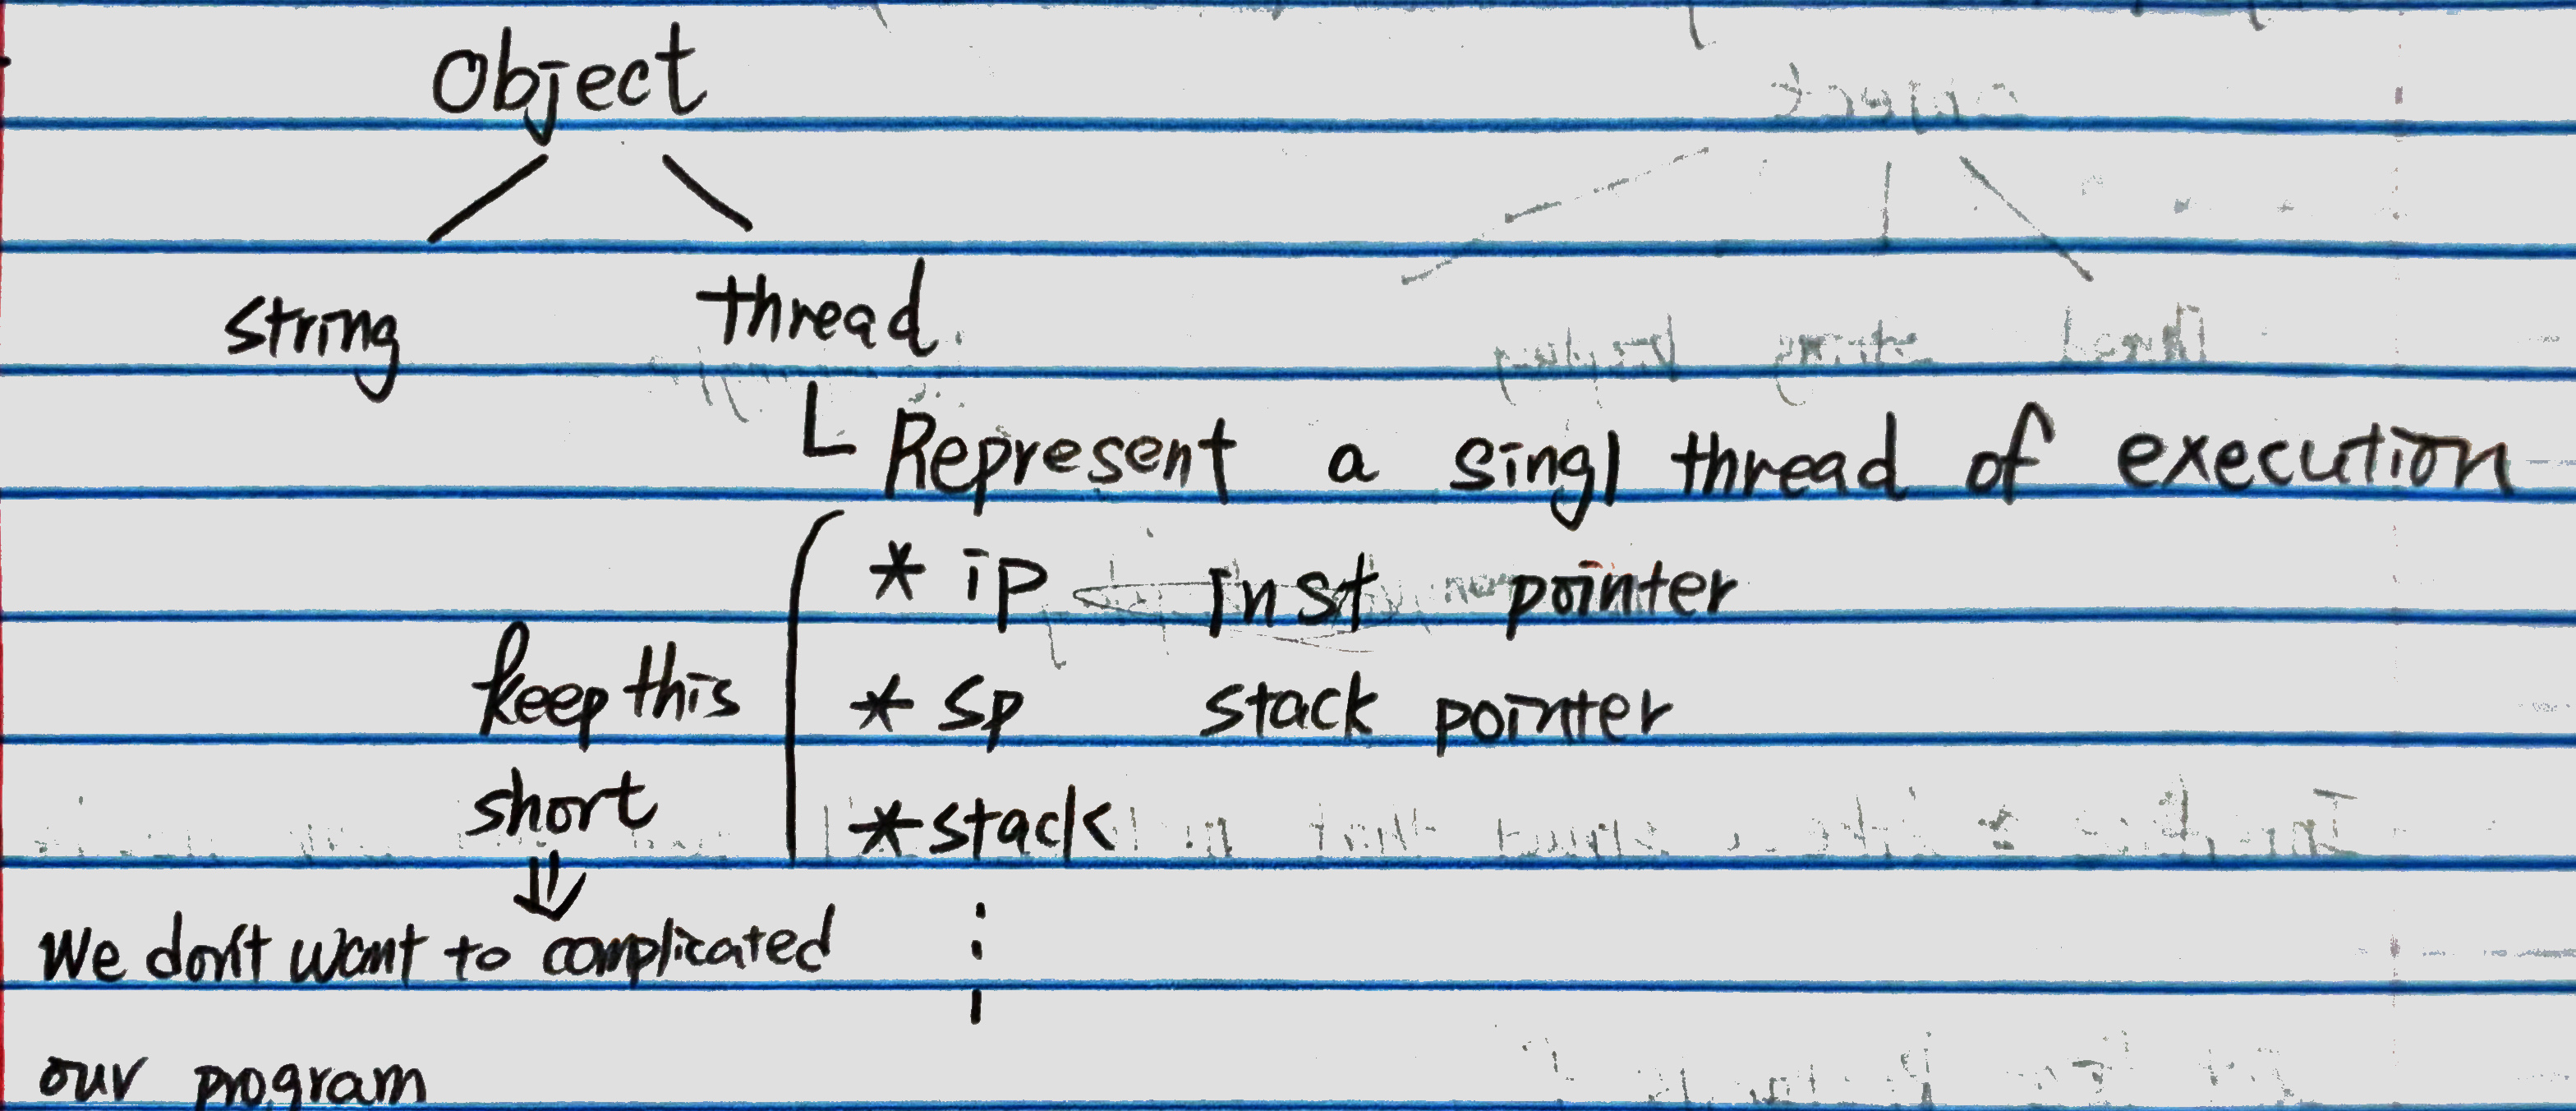 Object
string thread
Represent a singl thread of execution
* ip inst pointer
keep this * sp stack pointer
short * stack
We don't want to complicated
our program